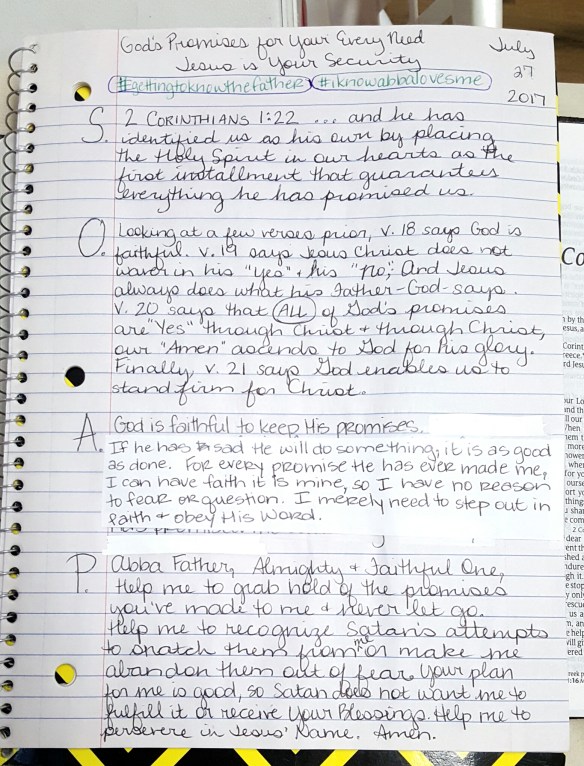 God's Promises for Your Every Need
Jesus is Your Security
July
27
2017
#gettingtoknowthefather #iknowabbalovesme
S. 2 CORINTHIANS 1:22 ... and he has
identified us as his own by placing
the Holy Spirit in our hearts as the
first installment that guarantees
everything he has promised us.
O. Looking at a few verses prior, v. 18 says God is
faithful. v. 19 says Jesus Christ does not
waver in his "yes" + his "no; And Jesus
always does what his Father-God-says.
V. 20 says that ALL of God's promises
are "Yes" through Christ + through Christ,
our "Amen" ascends to God for his glory.
Finally, v. 21 says God enables us to
stand firm for Christ.
A. God is faithful to keep His promises.
If he has sad He will do something, it is as good
as done. For every promise He has ever made me,
I can have faith it is mine, so I have no reason
to fear or question. I merely need to step out in
faith + obey His Word.
P. Abba Father, Almighty + Faithful One,
Help me to grab hold of the promises
you've made to me + never let go.
Help me to recognize Satan's attempts
to snatch them from me or make me
abandon them out of fear. Your plan
for me is good, so Satan does not want me to
fulfill it or receive Your Blessings. Help me to
persevere in Jesus' Name. Amen.
Co